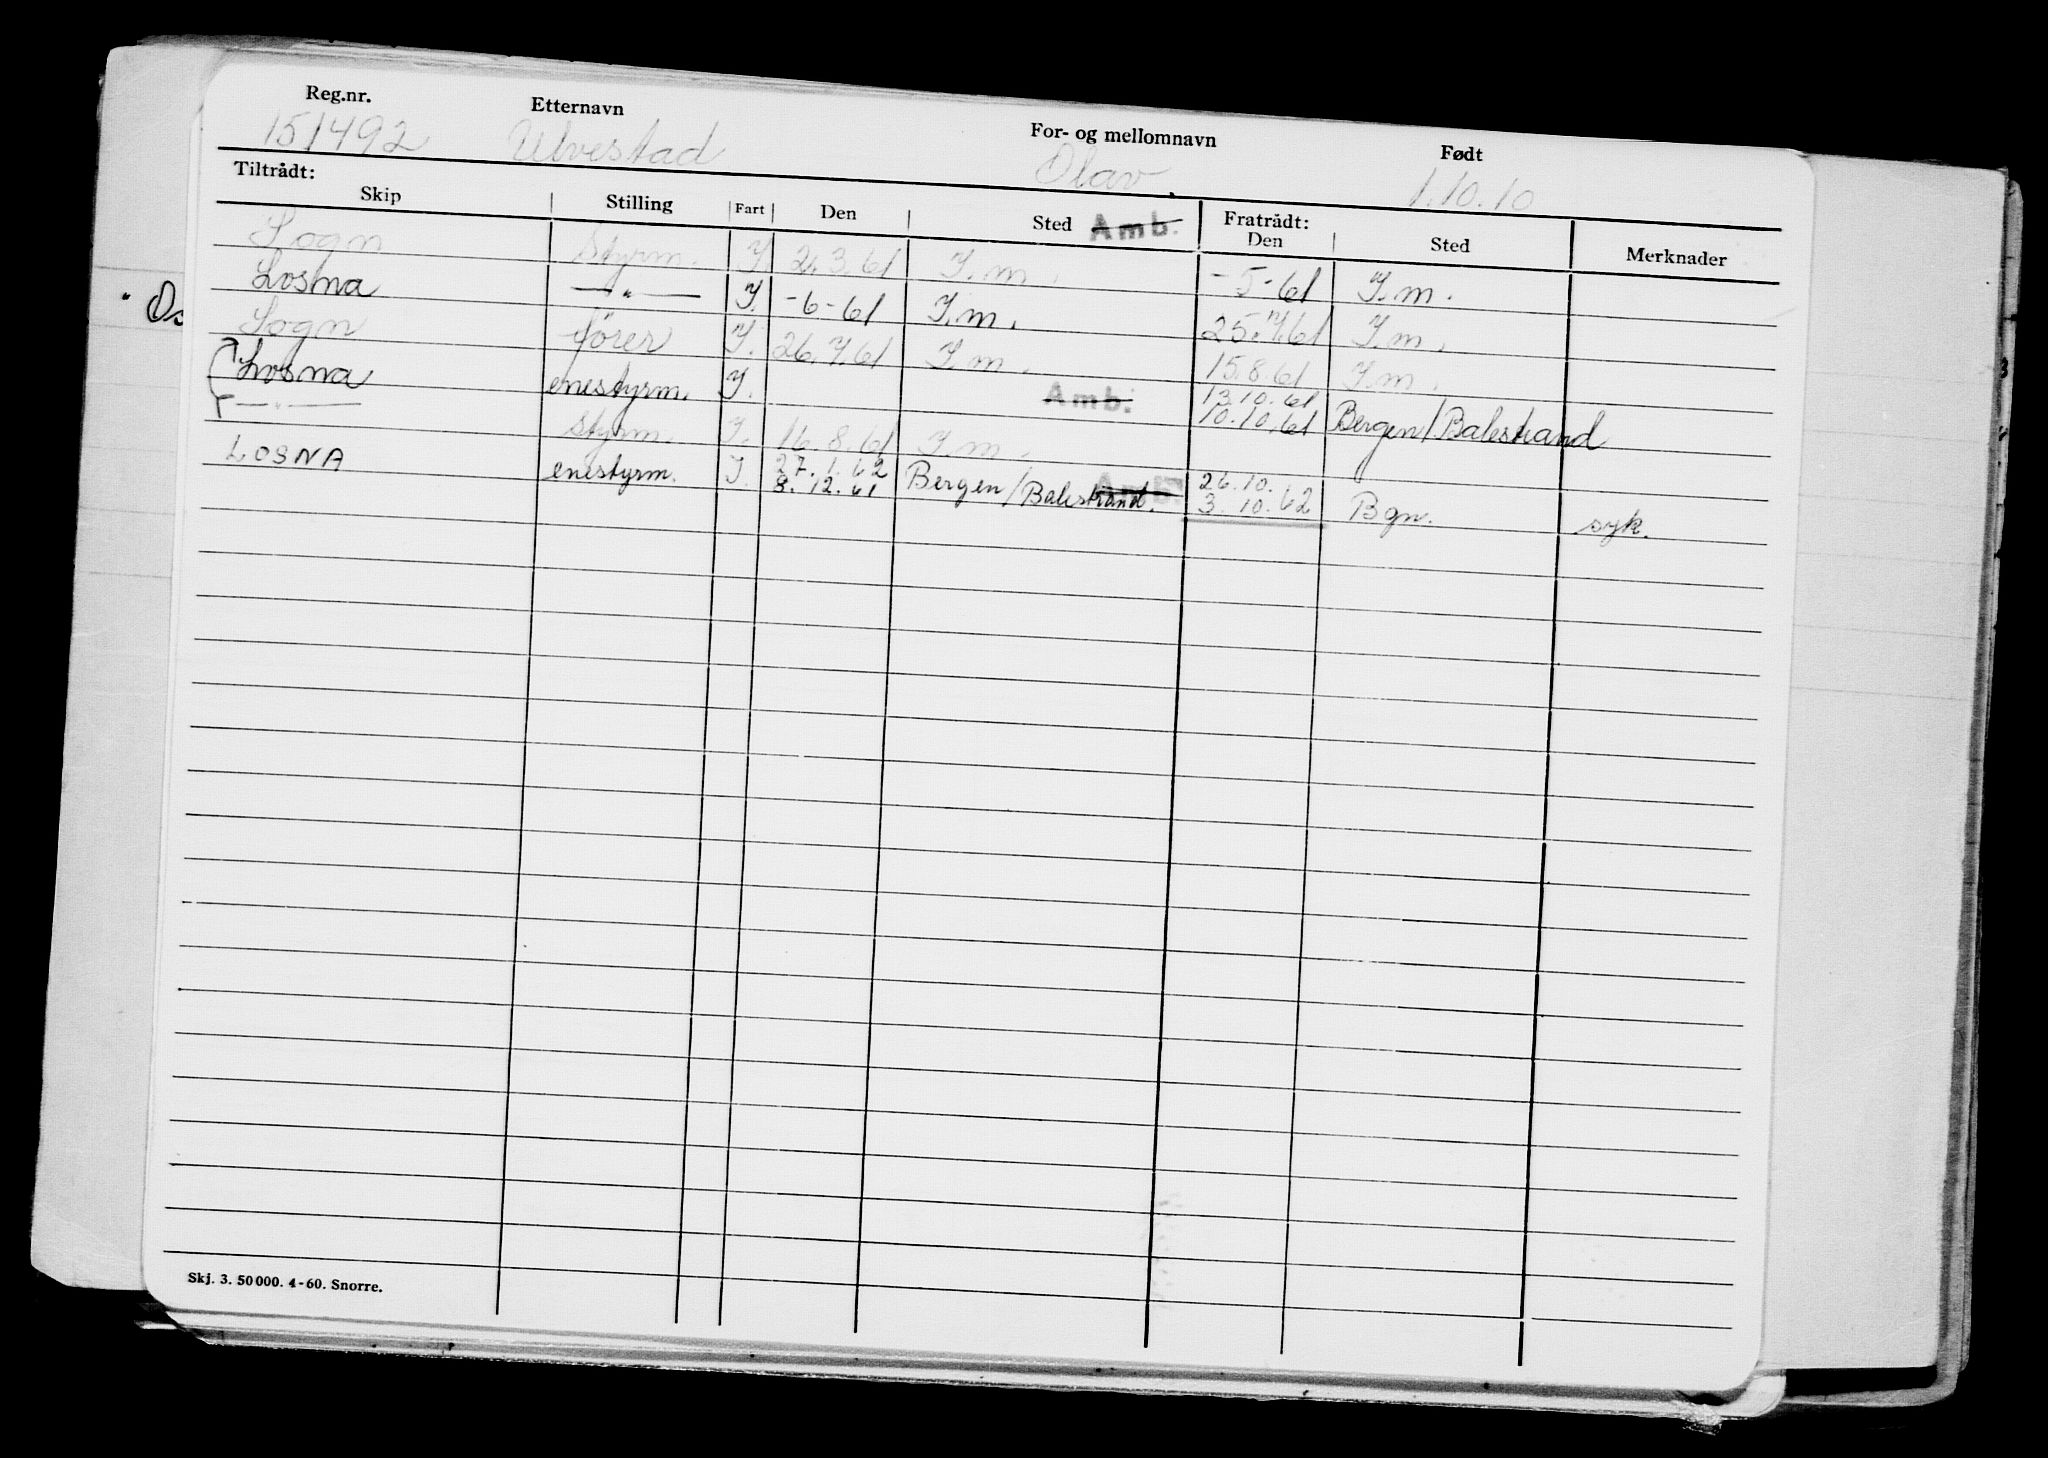 Reg.nr. Etternavn For- og mellomnavn Født
151492 Ulvestad Olav. 1.10.10
Tiltrådt: Fratrådt:
Skip Stilling Fart Den Sted Amb. Den Sted Merknader
Sogn Styrm. I. 2.3.61 I.m. -5-61 I.m.
Losna —"— I. -6-61 I.m. 25.7.61 I.m.
Sogn förer I. 26.7.61 I.m. 15.8.61 I.m.
Losna enestyrm. I. Amb. 13.10.61
10.10.61 Bergen/Balestrand
—"— Styrm. I. 16.8.61 I.m.
LOSNA enestyrm. I. 27.1.62
8.12.61 Bergen/Balestrand. Amb. 26.10.
3.10.62 Bgn. syk.
Skj. 3. 50000. 4-60. Snorre.